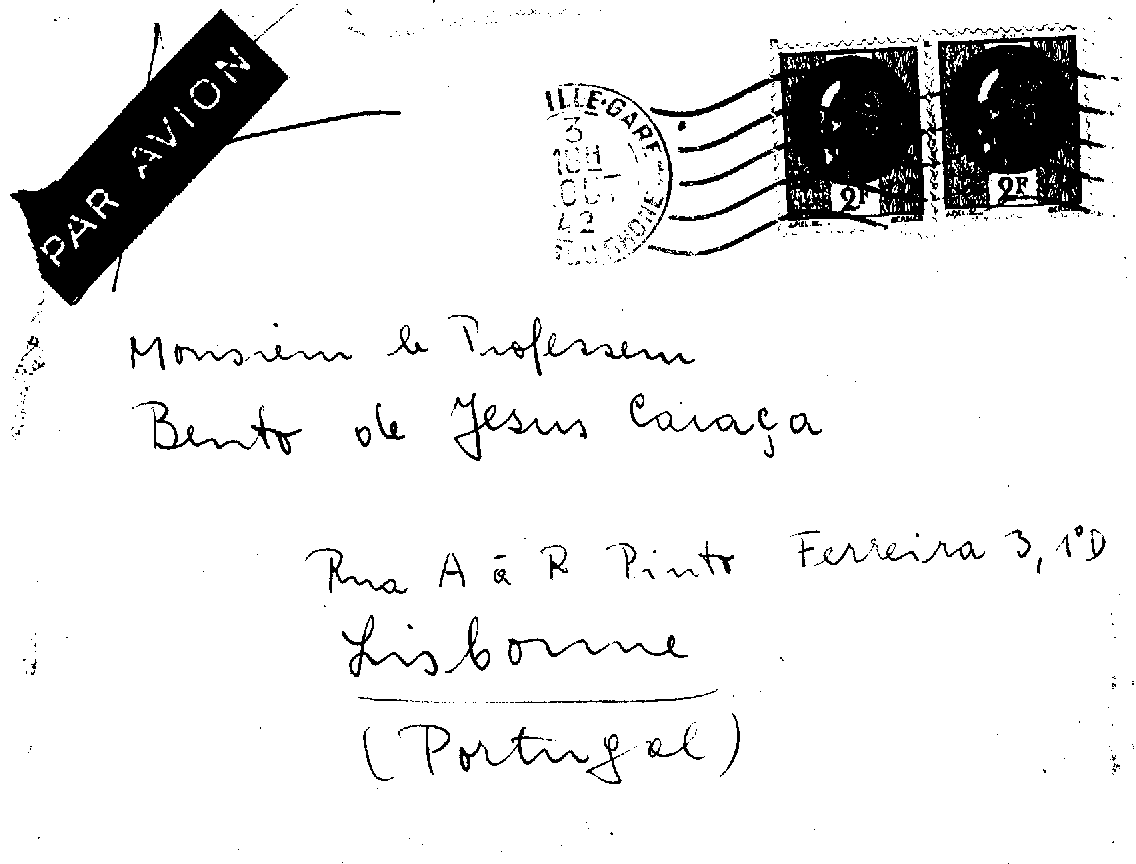 PAR AVION
ILLE-GARE
3
10H
OCT
42
RHONE
2F
2F
Monsieur le Professeur
Bento de Jesus Caraça
Rua A à R Pinto Ferreira 3, 1º D
Lisbonne
(Portugal)